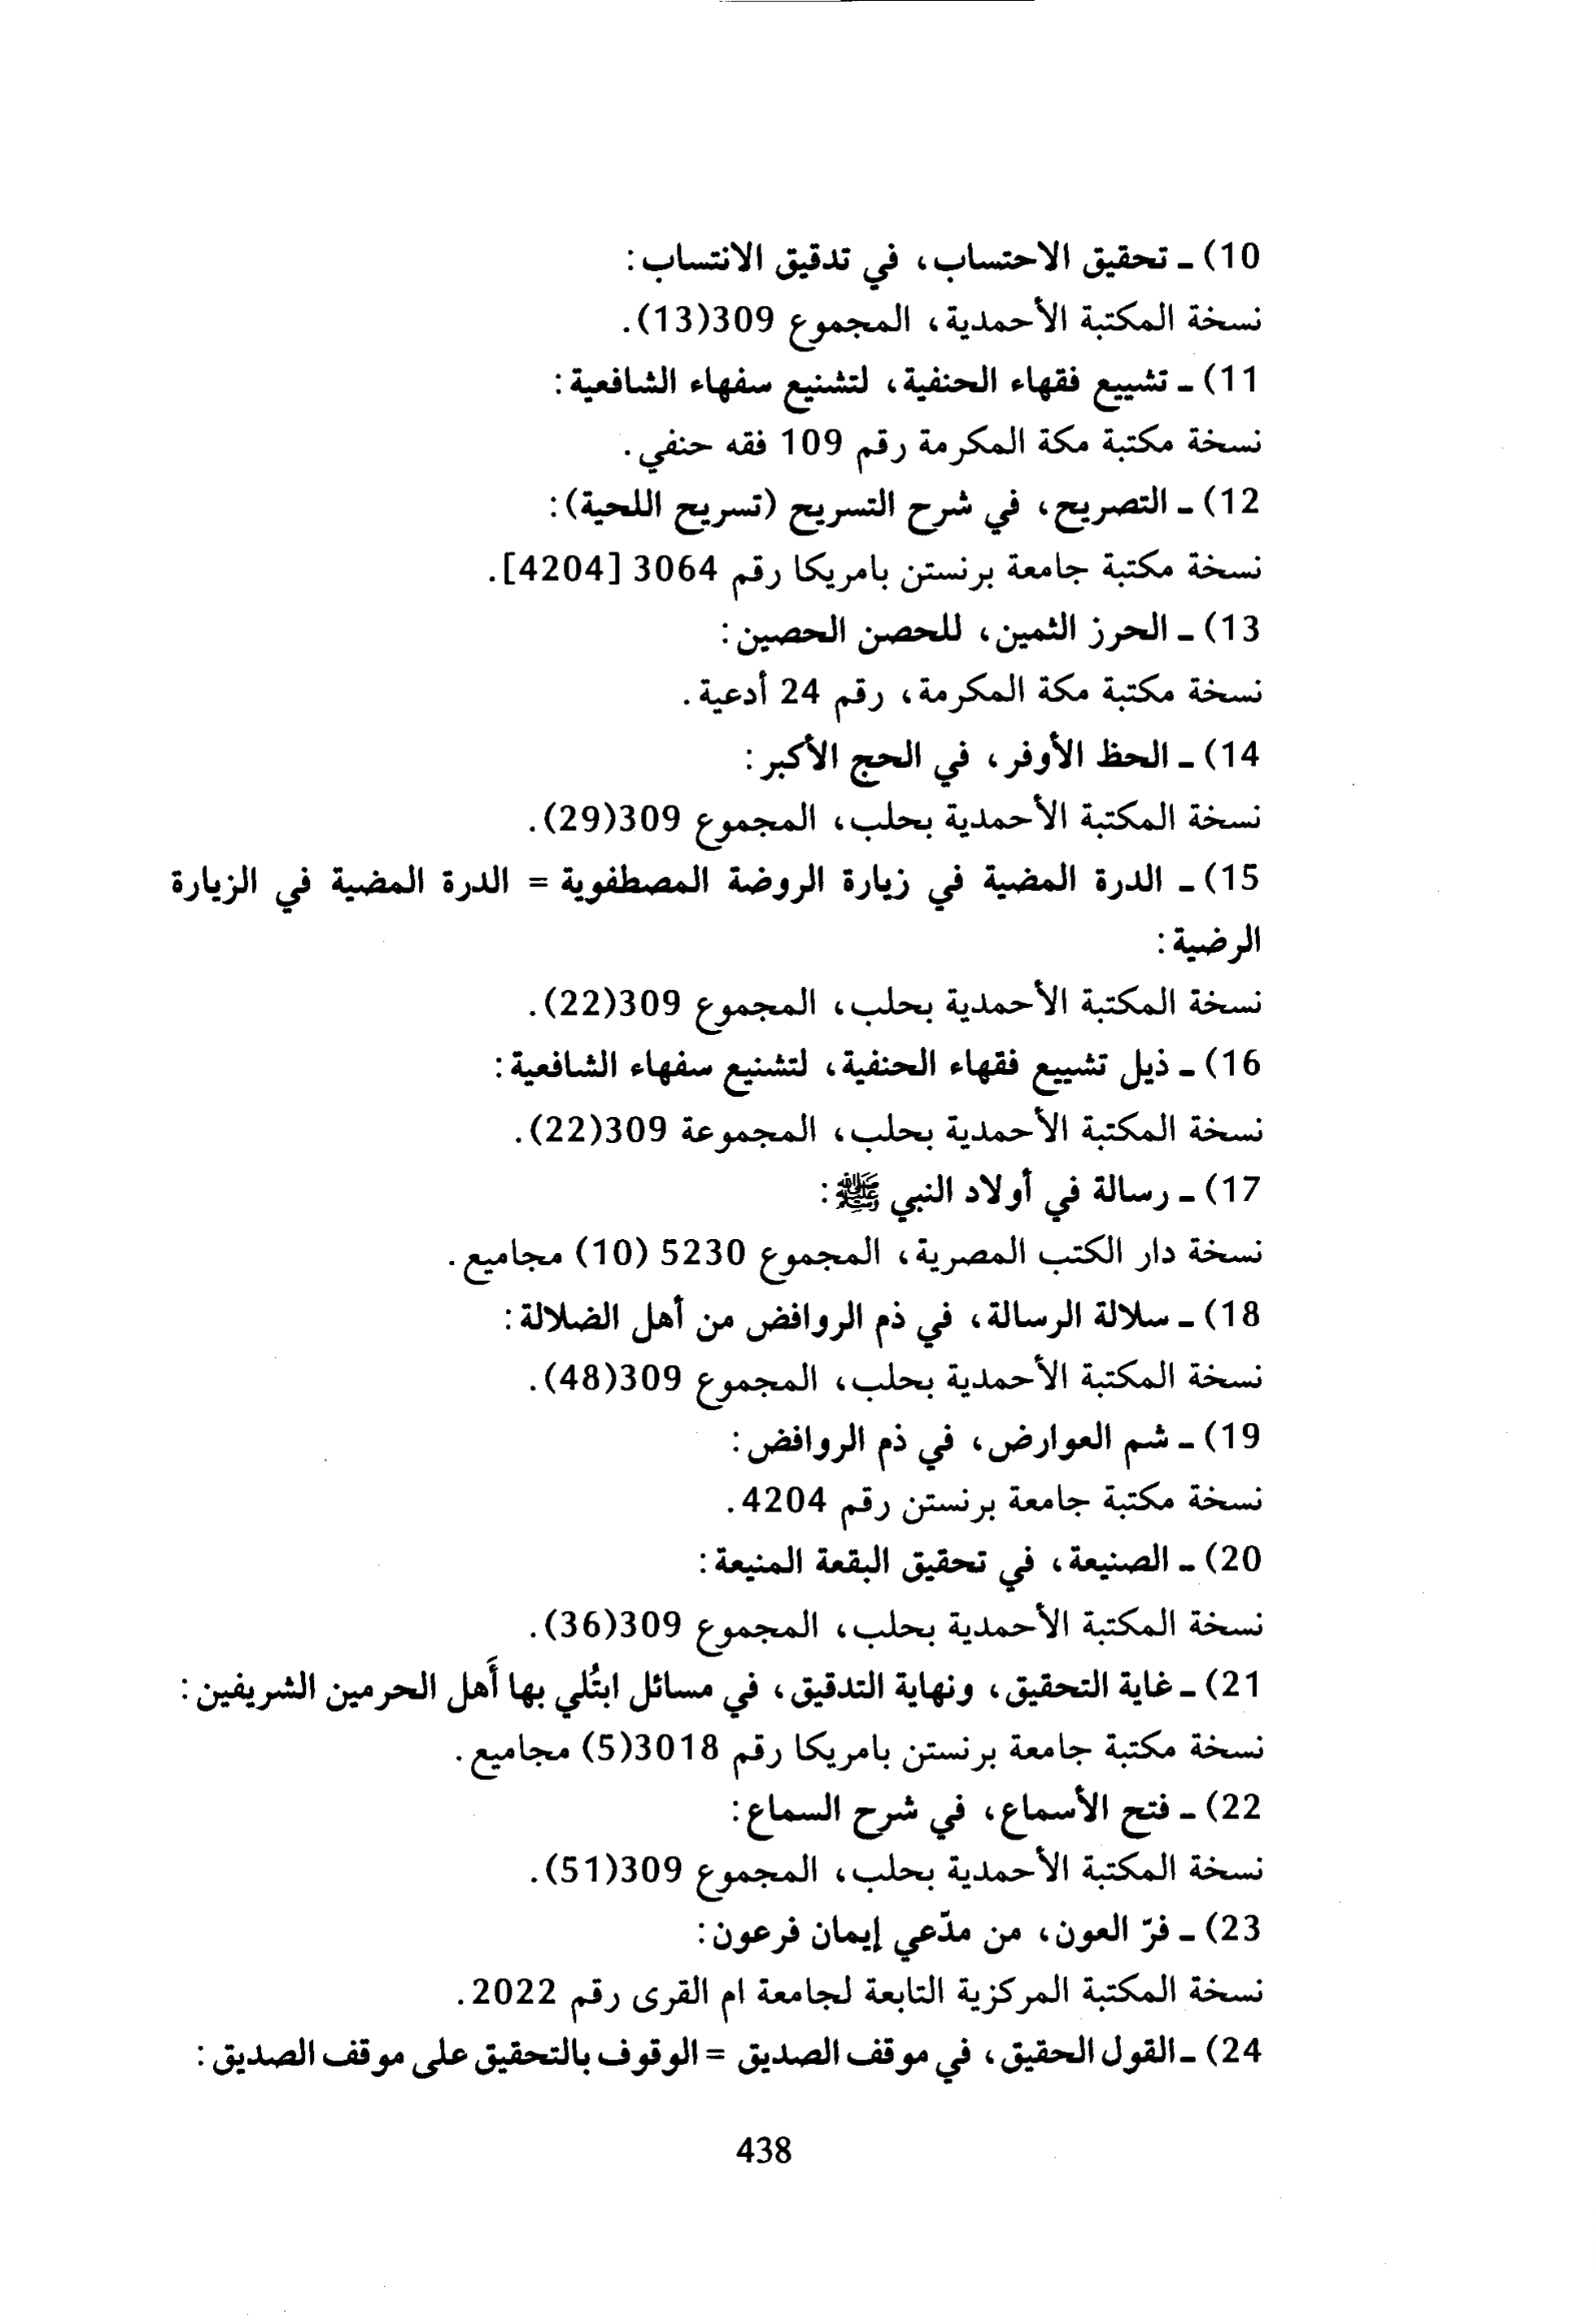 10) ـ تحقيق الاحتساب، في تدقيق الانتساب:
نسخة المكتبة الأحمدية، المجموع 309(13).
11) ـ تشييع فقهاء الحنفية، لتشنيع سفهاء الشافعية:
نسخة مكتبة مكة المكرمة رقم 109 فقه حنفي.
12) ـ التصريح، في شرح التسريح (تسريح اللحية):
نسخة مكتبة جامعة برنستن بامريكا رقم 3064 [4204].
13) ـ الحرز الثمين، للحصن الحصين:
نسخة مكتبة مكة المكرمة، رقم 24 أدعية.
14) ـ الحظ الأوفر، في الحج الأكبر:
نسخة المكتبة الأحمدية بحلب، المجموع 309(29).
15) ـ الدرة المضية في زيارة الروضة المصطفوية = الدرة المضية في الزيارة
الرضية:
نسخة المكتبة الأحمدية بحلب، المجموع 309(22).
16) ـ ذيل تشييع فقهاء الحنفية، لتشنيع سفهاء الشافعية:
نسخة المكتبة الأحمدية بحلب، المجموعة 309(22).
17) ـ رسالة في أولاد النبي ﷺ:
نسخة دار الكتب المصرية، المجموع 5230 (10) مجاميع.
18) ـ سلالة الرسالة، في ذم الروافض من أهل الضلالة:
نسخة المكتبة الأحمدية بحلب، المجموع 309(48).
19) ـ شم العوارض، في ذم الروافض:
نسخة مكتبة جامعة برنستن رقم 4204.
20) ـ الصنيعة، في تحقيق البقعة المنيعة:
نسخة المكتبة الأحمدية بحلب، المجموع 309(36).
21) ـ غاية التحقيق، ونهاية التدقيق، في مسائل ابتُلي بها أَهل الحرمين الشريفين:
نسخة مكتبة جامعة برنستن بامريكا رقم 3018(5) مجاميع.
22) ـ فتح الأسماع، في شرح السماع:
نسخة المكتبة الأحمدية بحلب، المجموع 309(51).
23) ـ فرّ العون، من مدّعي إيمان فرعون:
نسخة المكتبة المركزية التابعة لجامعة ام القرى رقم 2022.
24) ـ القول الحقيق، في موقف الصديق = الوقوف بالتحقيق على موقف الصديق:
438